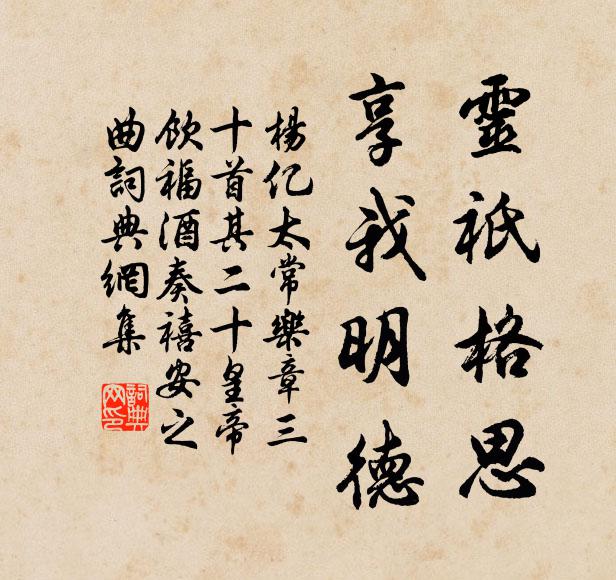 靈祇格思
享我明德
楊亿太常樂章三
十首其二十皇帝
飲福酒奏禧安之
曲詞典網集
詞典
网印